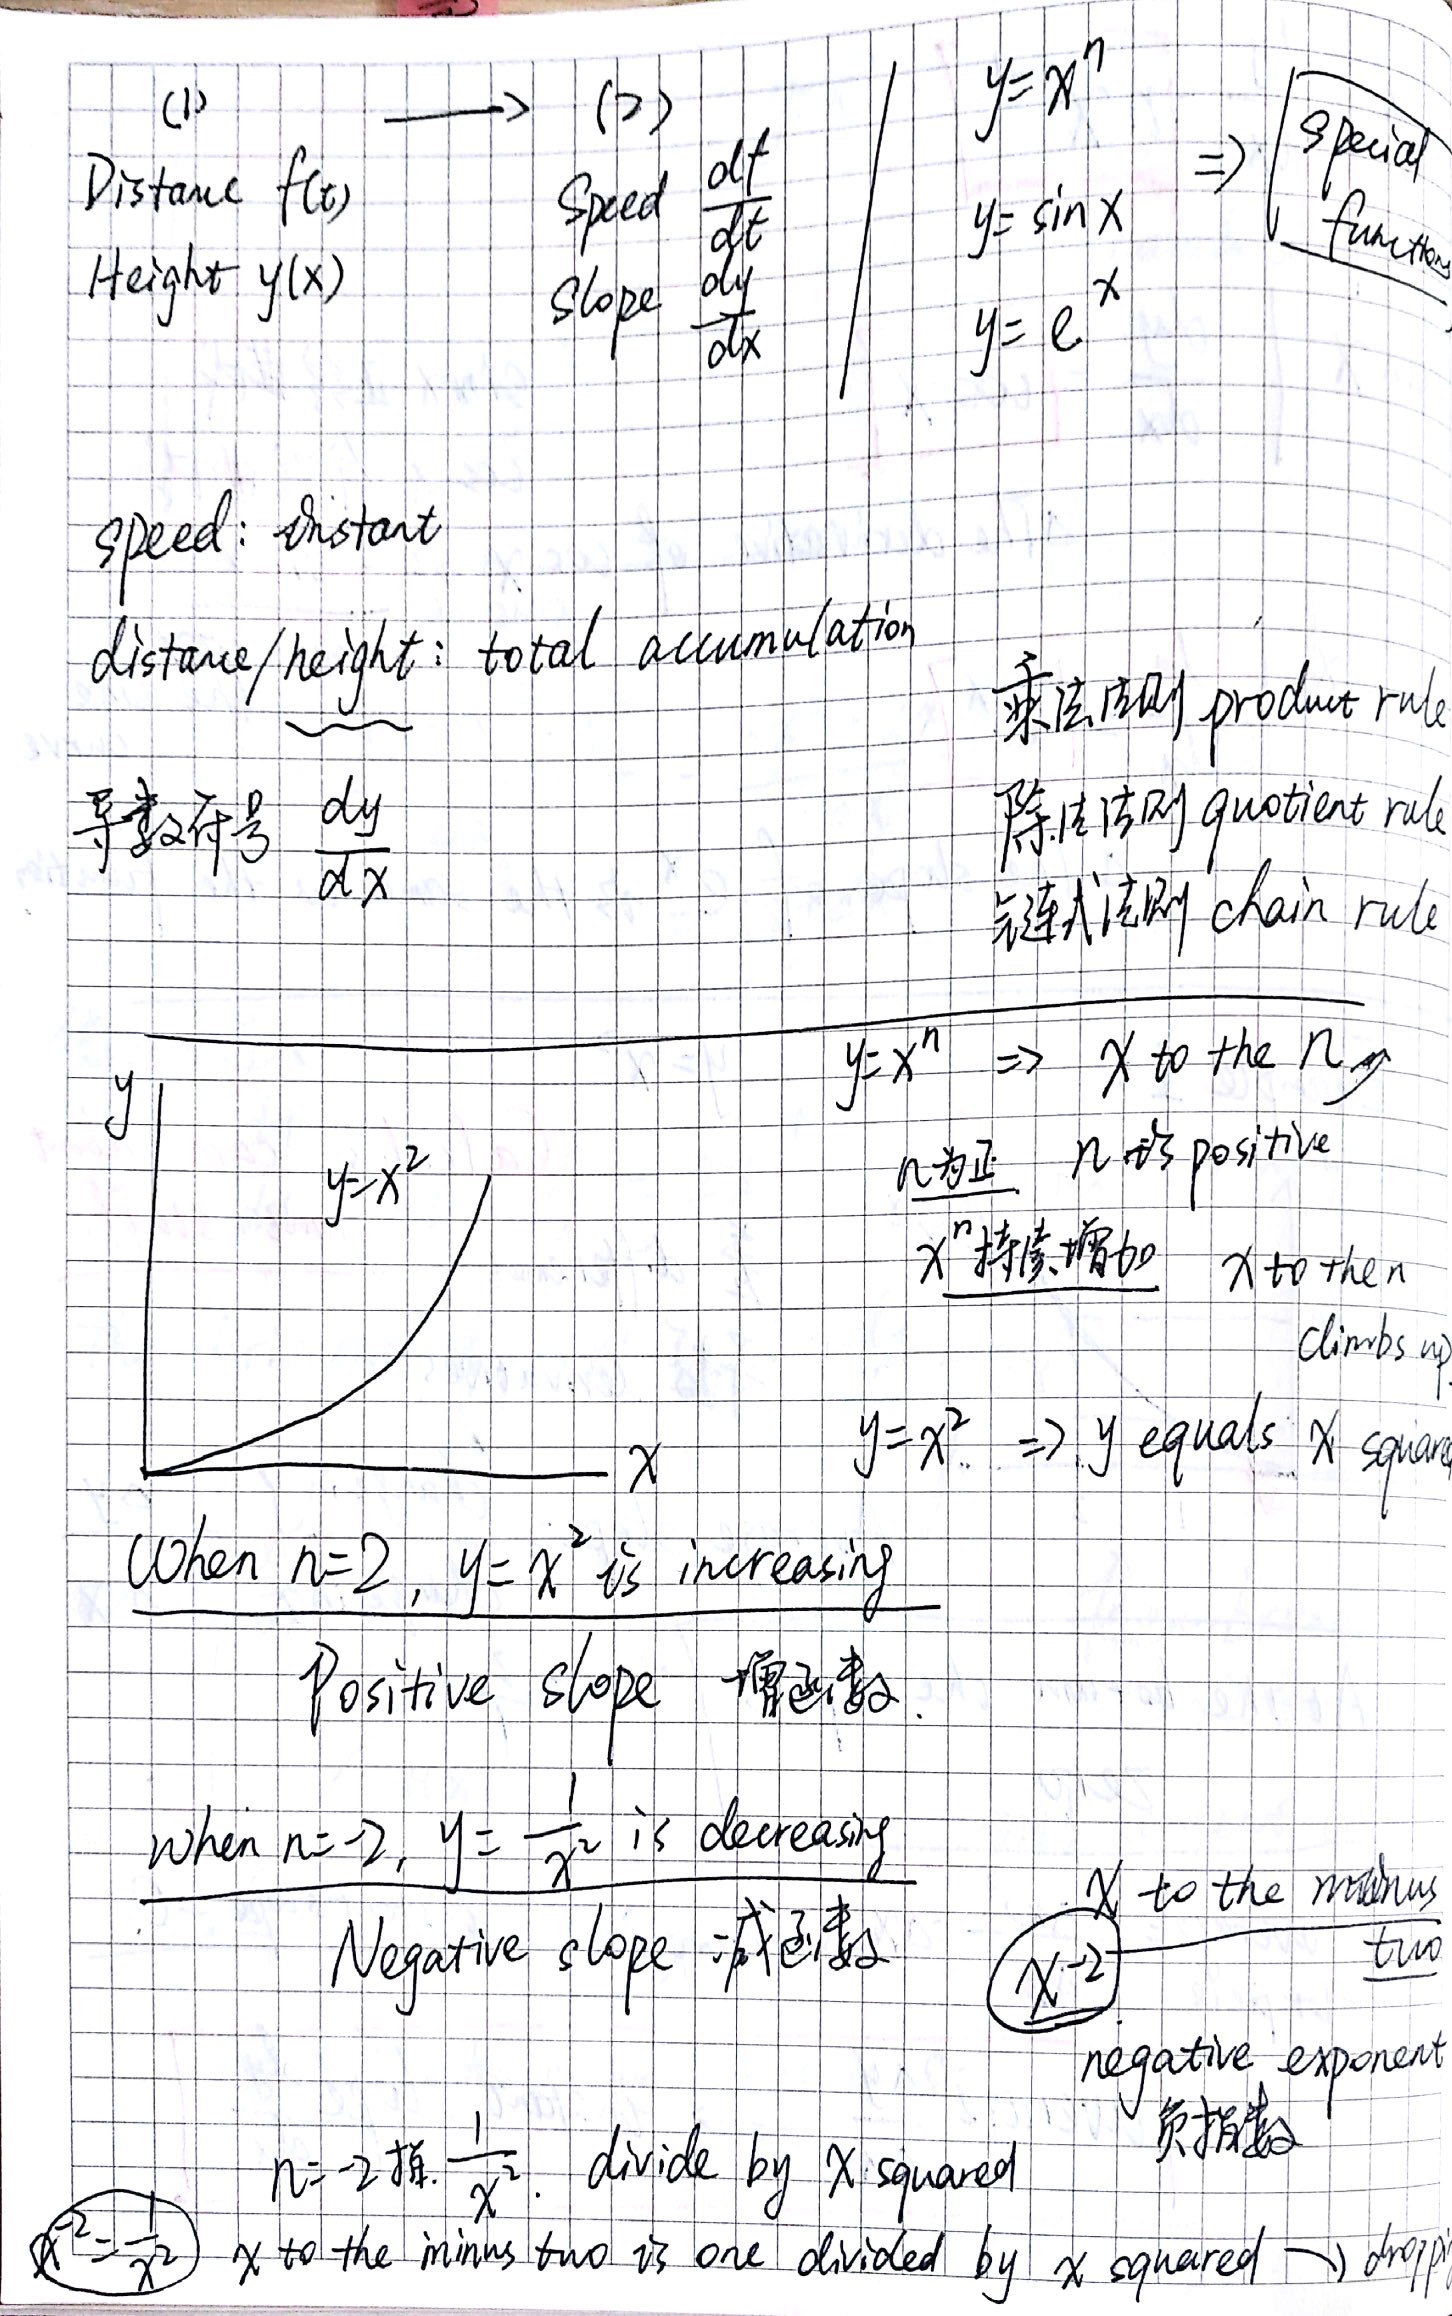 (1) → (2)
Distance f(t) Speed df/dt
Height y(x) Slope dy/dx
y=xⁿ
y=sinx
y=eˣ
⇒ special
functions
speed: instant
distance/height: total accumulation
导数符号 dy/dx
乘法法则 product rule
除法法则 quotient rule
链式法则 chain rule
y
y=x²
x
y=xⁿ ⇒ x to the n
n为正 n is positive
xⁿ持续增加 x to the n
climbs up
y=x² ⇒ y equals x square
When n=2, y=x² is increasing
Positive slope 增函数.
when n=-2, y=1/x² is decreasing
Negative slope 减函数
x to the minus
two
x⁻²
negative exponent
负指数
n=-2指. 1/x². divide by x squared
x⁻²=1/x² x to the minus two is one divided by x squared →